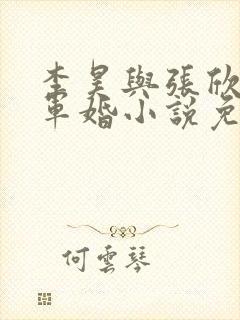 李昊與張欣
軍婚小說免
何雲琴